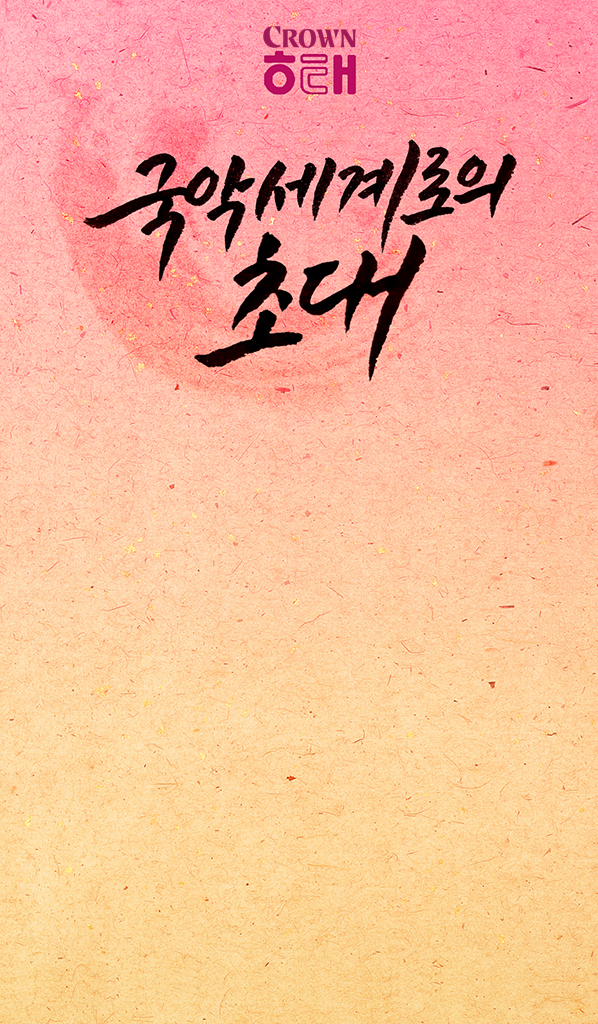 CROWN
해태
국악세계로의
초대